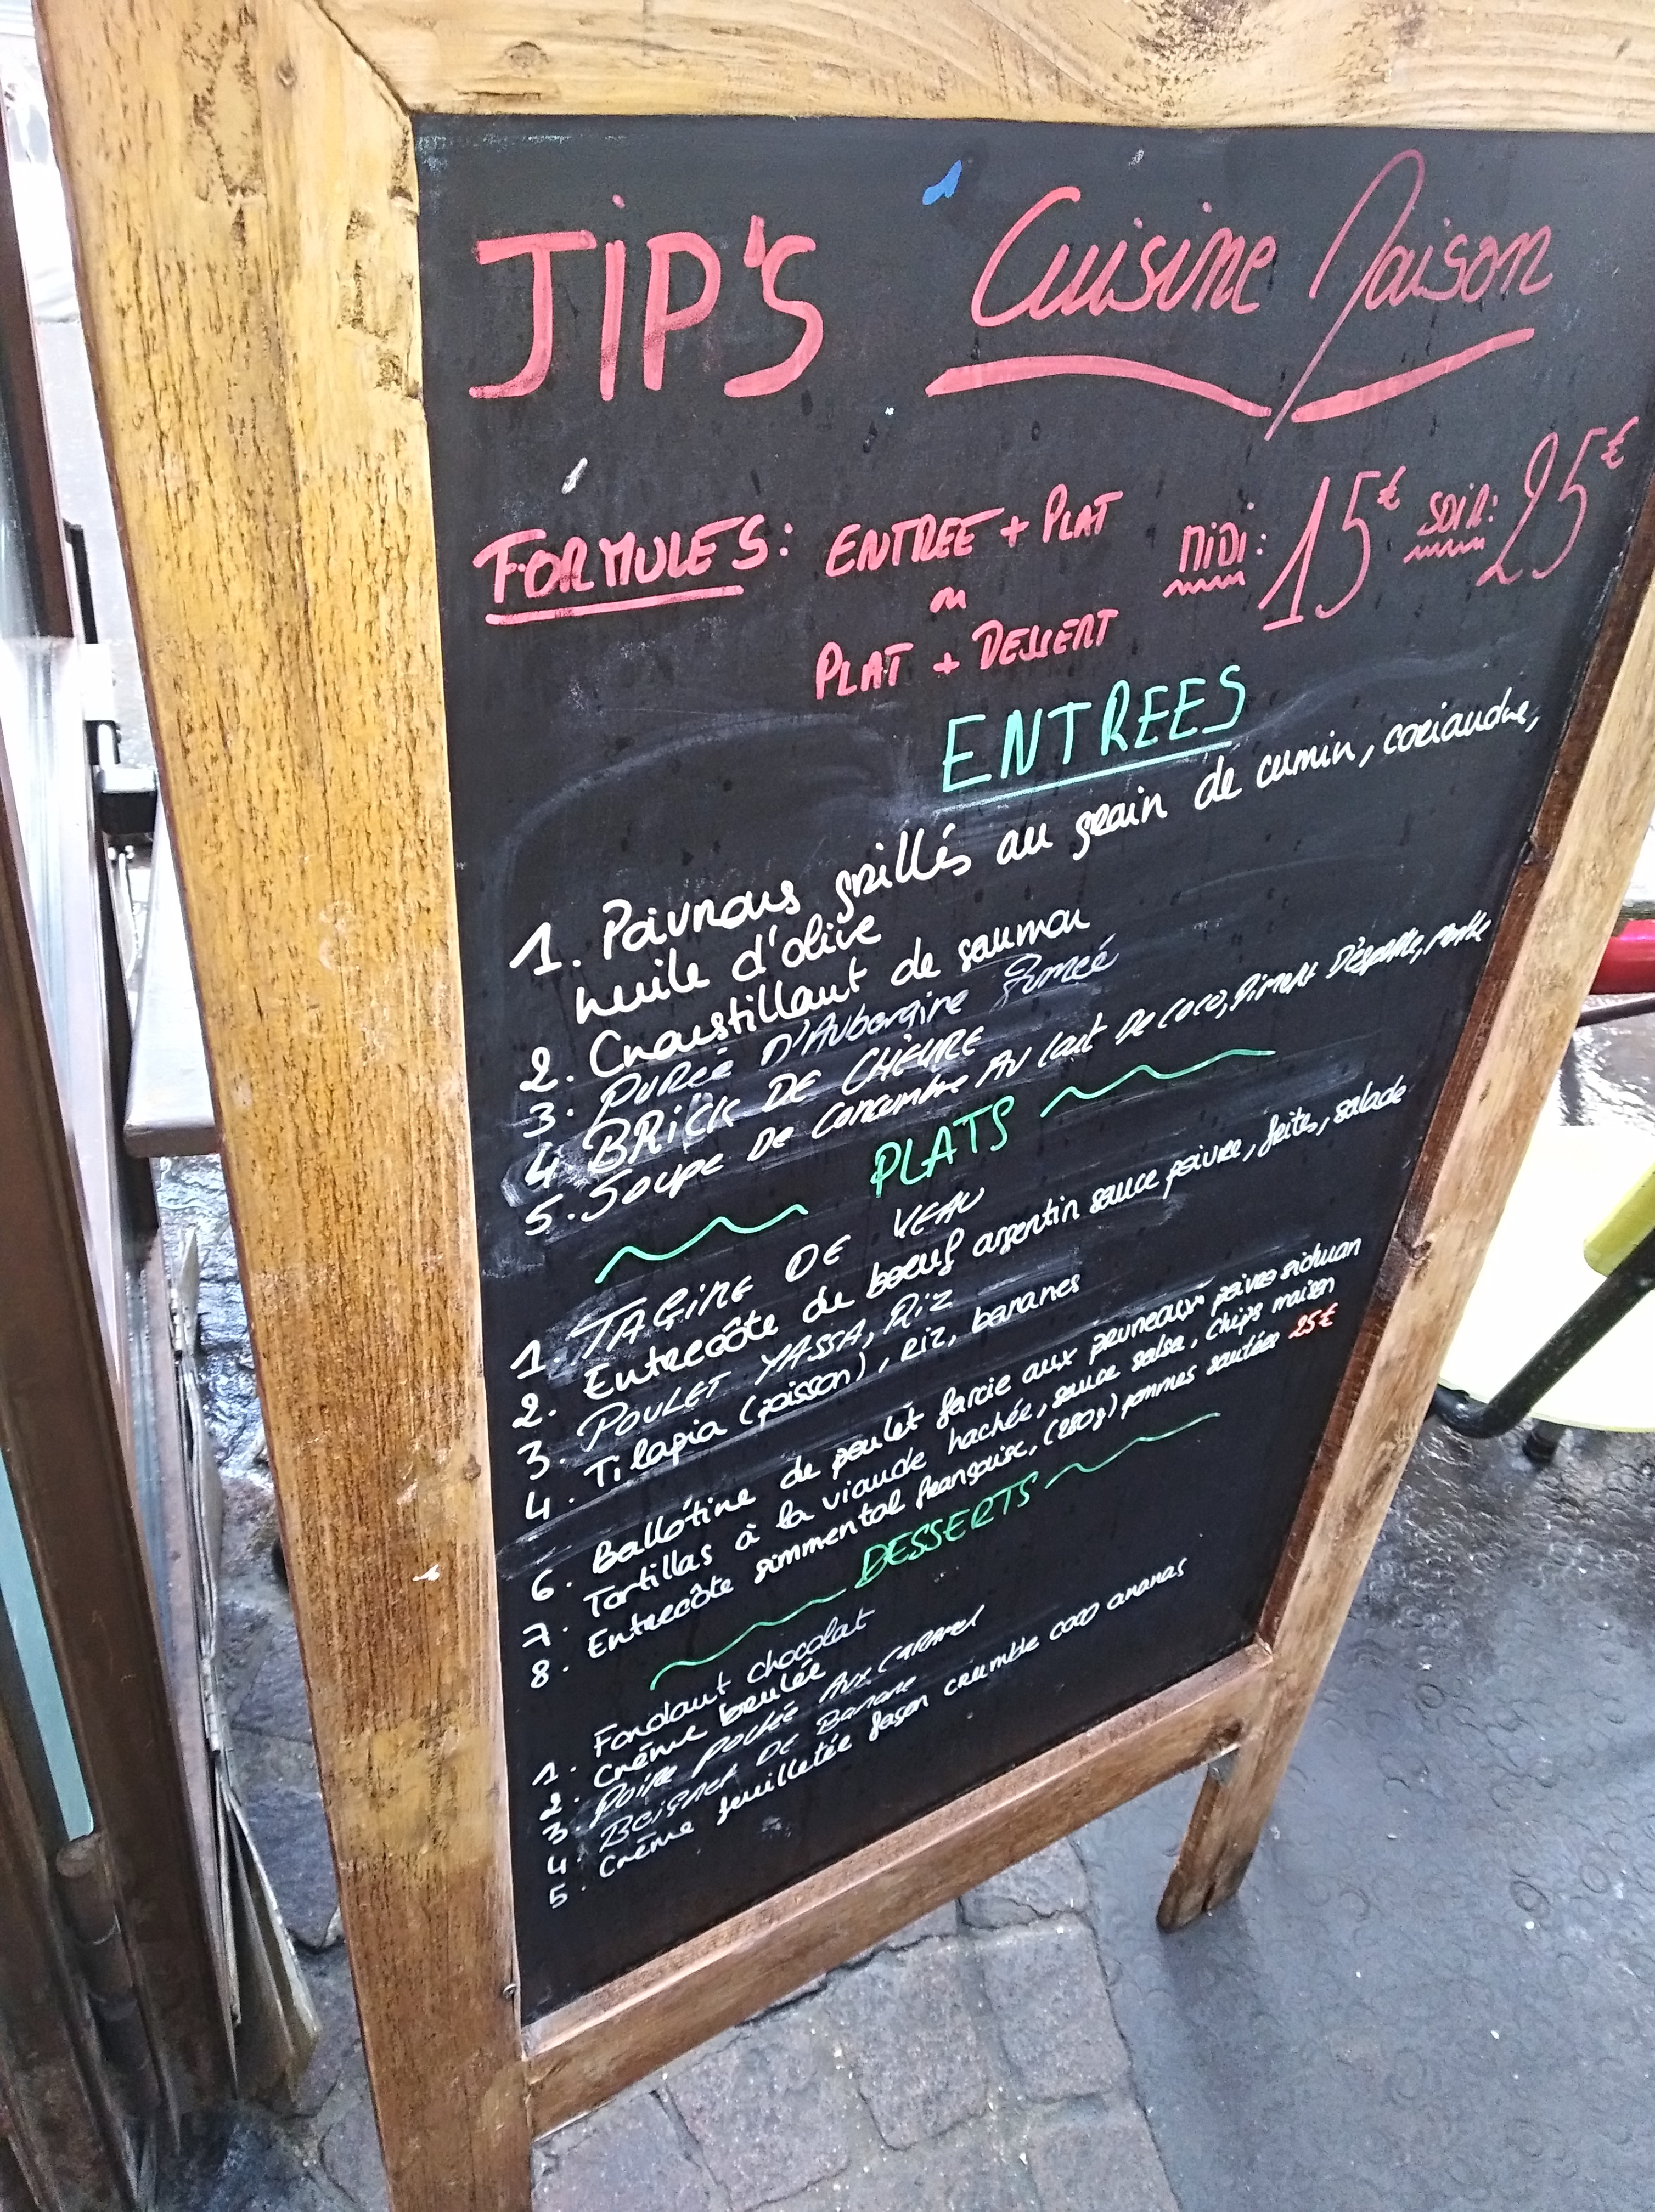 JIP'S Cuisine Maison
FORMULES: ENTREE + PLAT MIDI: 15€ SOIR: 25€
ou
PLAT + DESSERT
ENTREES
1. Poivrons grillés au grain de cumin, coriandre,
huile d'olive
2. Croustillant de saumon
3. PUREE D'Aubergine fumée
4 BRICK DE CHÈVRE
5. Soupe De Concombre Au lait De coco, Piment D'espelette, menthe
PLATS
1. TAGINE DE VEAU
2. Entrecôte de boeuf argentin sauce poivre, frites, salade
3. POULET YASSA, Riz
4. Tilapia (poisson), riz, bananes
6. Ballotine de poulet farcie aux pruneaux poivre sichuan
7. Tortillas à la viande hachée, sauce salsa, chips maison
8. Entrecôte simmental française, (280g) pommes sautées 25€
DESSERTS
1. Fondant chocolat
2. Crème brulée
3. Poire pochée Aux CARAMEL
4 Beignet DE Banane
5. Crème feuilletée façon crumble coco ananas